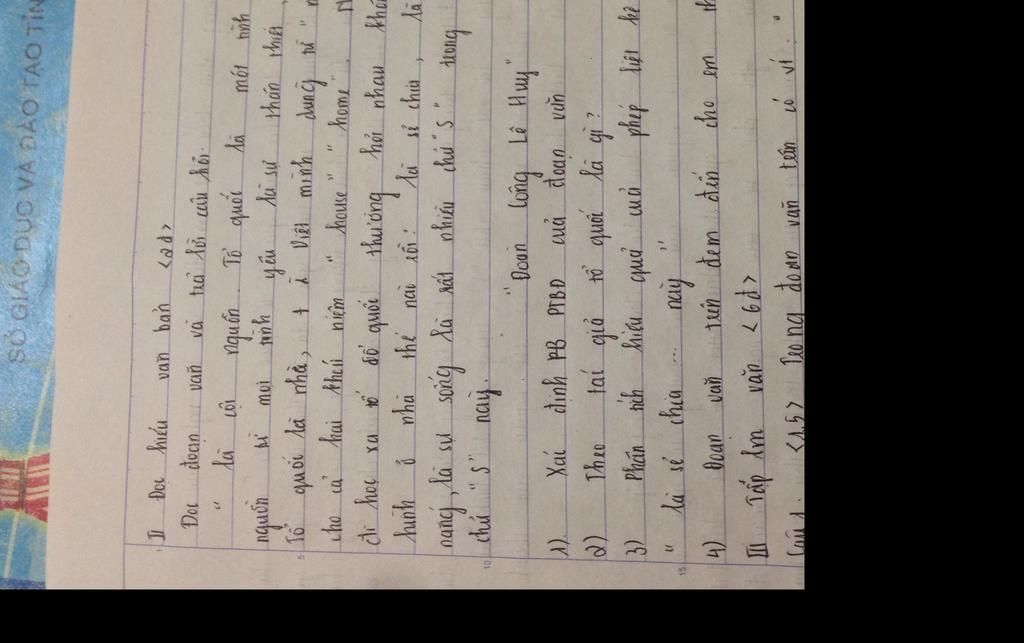 SỞ GIÁO DỤC VÀ ĐÀO TẠO TỈN
I Đọc hiểu văn bản <2đ>
Đọc đoạn văn và trả lời câu hỏi.
" là cội nguồn. Tổ quốc là một tình
nguồn từ mọi tình yêu là sự thân thiết
Tổ quốc là nhà, t Việt mình dùng từ "n
cho cả hai khái niệm "house" "home".
chỉ học xa tổ quốc thường hỏi nhau khá
hình ở nhà thế nào rồi? là sẻ chia, là
nặng, là sự sống là rất nhiều chữ "S" trong
chữ "S" này.
"Đoàn Công Lê Huy"
1) Xác định PB PTBĐ của đoạn văn
2) Theo tác giả tổ quốc là gì?
3) Phân tích hiệu quả của phép liệt kê
" là sẻ chia ... này "
4) Đoạn văn trên đem đến cho em th
III Tập lm văn <6đ>
Câu 1. <1,5> Trong đoạn văn trên có ví: "
5
10
15